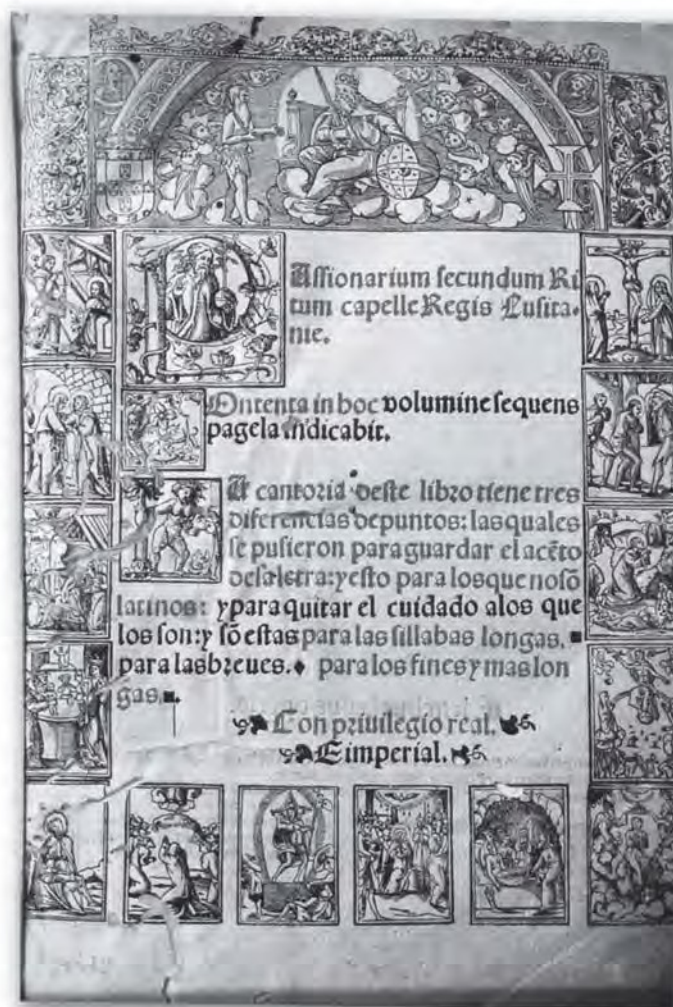 PAssionarium secundum Ri
tum capelle Regis Lusita-
nie.
COntenta in hoc volumine sequens
pagela indicabit.
LA cantoria deste libro tiene tres
diferencias de puntos: las quales
se pusieron para guardar el acẽto
dela letra: y esto para los que no sõ
latinos: y para quitar el cuidado a los que
los son: y sõ estas para las sillabas longas. ■
para las breues. ◆ para los fines y mas lon
gas
Con priuilegio real.
E imperial.